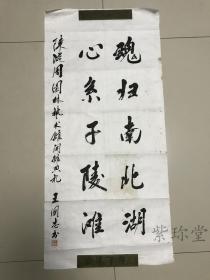 魂归南北湖
心系子陵滩
陈从周园林艺术馆开馆典礼
王国忠书
紫珍堂